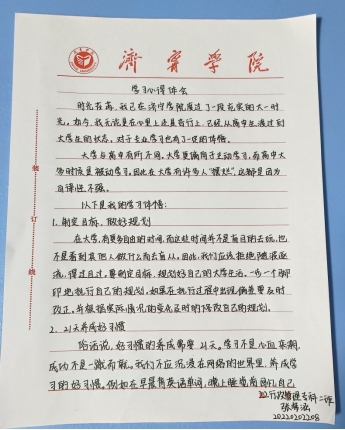 济宁学院
学习心得体会
时光荏苒,我已在济宁学院度过了一段充实的大一时
光。如今,我无论是在心里上还是言行上,已经从高中生过渡到
大学生的状态。对于专业学习也有了一定的体悟。
大学与高中有所不同。大学更偏向于主动学习,而高中大
多时候是被动学习。因此在大学有许多人“摆烂”,这都是因为
自律性不强。
以下是我的学习体悟:
1.制定目标,做好规划
在大学,有更多自由的时间,而这些时间并不是盲目的去玩,也
不是看到其他人做什么而去盲从。因此,我们应该拒绝随波逐
流,得过且过。要制定目标,规划好自己的大学生活。一步一个脚
印地执行自己的规划。如果在执行过程中出现偏差要及时
改正。并根据实际情况的变化及时的修改自己的规划。
2.21天养成好习惯
俗话说,好习惯的养成需要21天。学习不是心血来潮,
成功不是一蹴而就。我们不应沉浸在网络的世界里,养成学
习的好习惯。例如在早晨背英语单词,晚上睡觉前回忆自己
装
订
线
22行政管理专科二班
张
20220202208